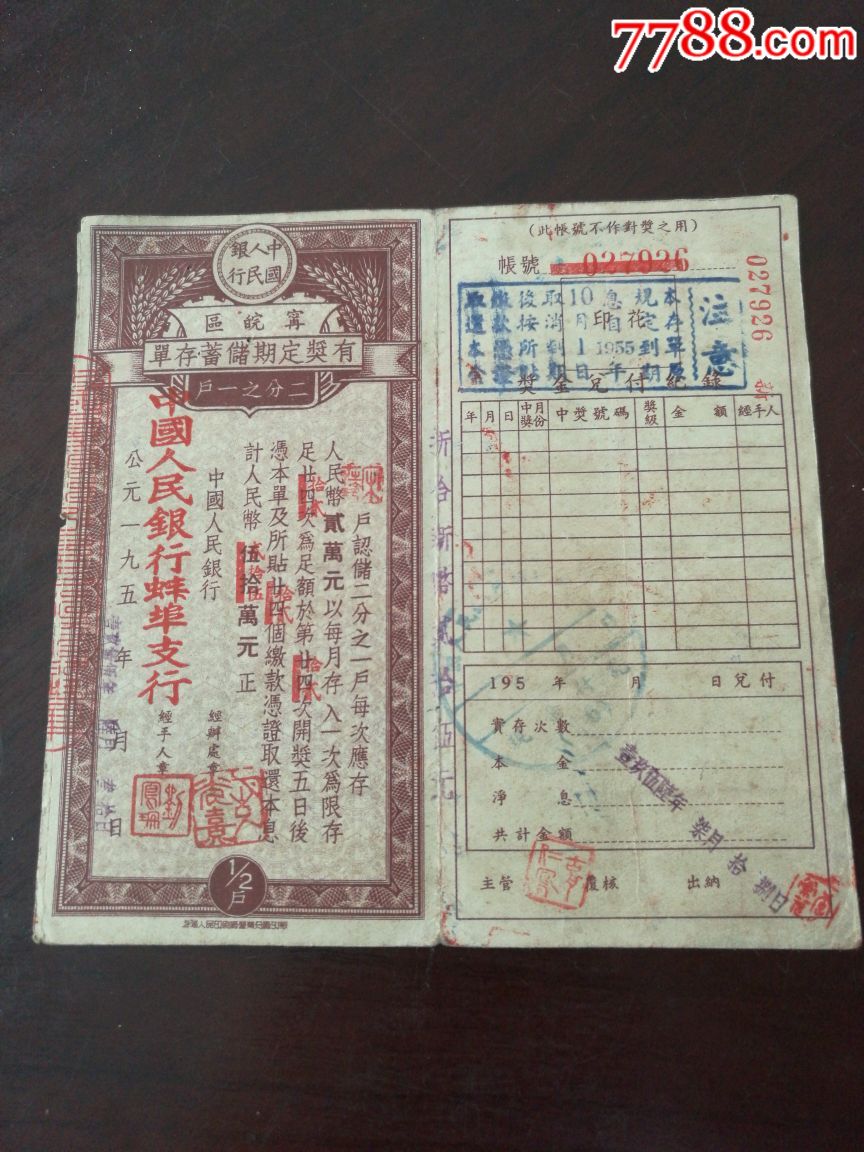 中國
人民
銀行
寧皖區
有獎定期儲蓄存單
二分之一戶
戶認儲二分之一戶每次應存
人民幣貳萬元以每月存入一次為限存
足廿四次為足額於第廿四次開獎五日後
憑本單及所貼廿四個繳款憑證取還本息
計人民幣伍拾萬元正
拾貳
拾貳
拾貳
中國人民銀行
經辦處章
經手人章
中國人民銀行蚌埠支行
公元一九五 年 月 日
1/2戶
(此帳號不作對獎之用)
帳號 027926
027926
注意
本存單原
規定到期
息自1955年
10月1日
取消到期
後按所貼
繳款憑證
取還本金
印花
獎金兌付紀錄
年 月 日 中獎月份 中獎號碼 獎級 金額 經手人
折合新幣貳拾伍元
195 年 月 日兌付
實存次數
本金
淨息
共計金額
壹玖伍 年 柒月拾捌日
主管 覆核 出納
7788.com